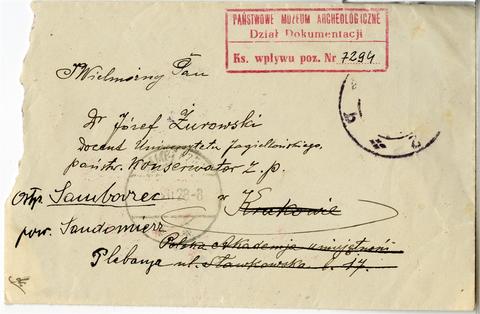 PAŃSTWOWE MUZEUM ARCHEOLOGICZNE
Dział Dokumentacji
Ks. wpływu poz. Nr 7294
JWielmożny Pan
Dr Józef Żurowski
docent Uniwersytetu Jagiellońskiego,
państw. Konserwator Z. p.
Samborzec w Krakowie
pow. Sandomierz
Polska Akademja umiejętności
Plebanja ul. Sławkowska l. 17.